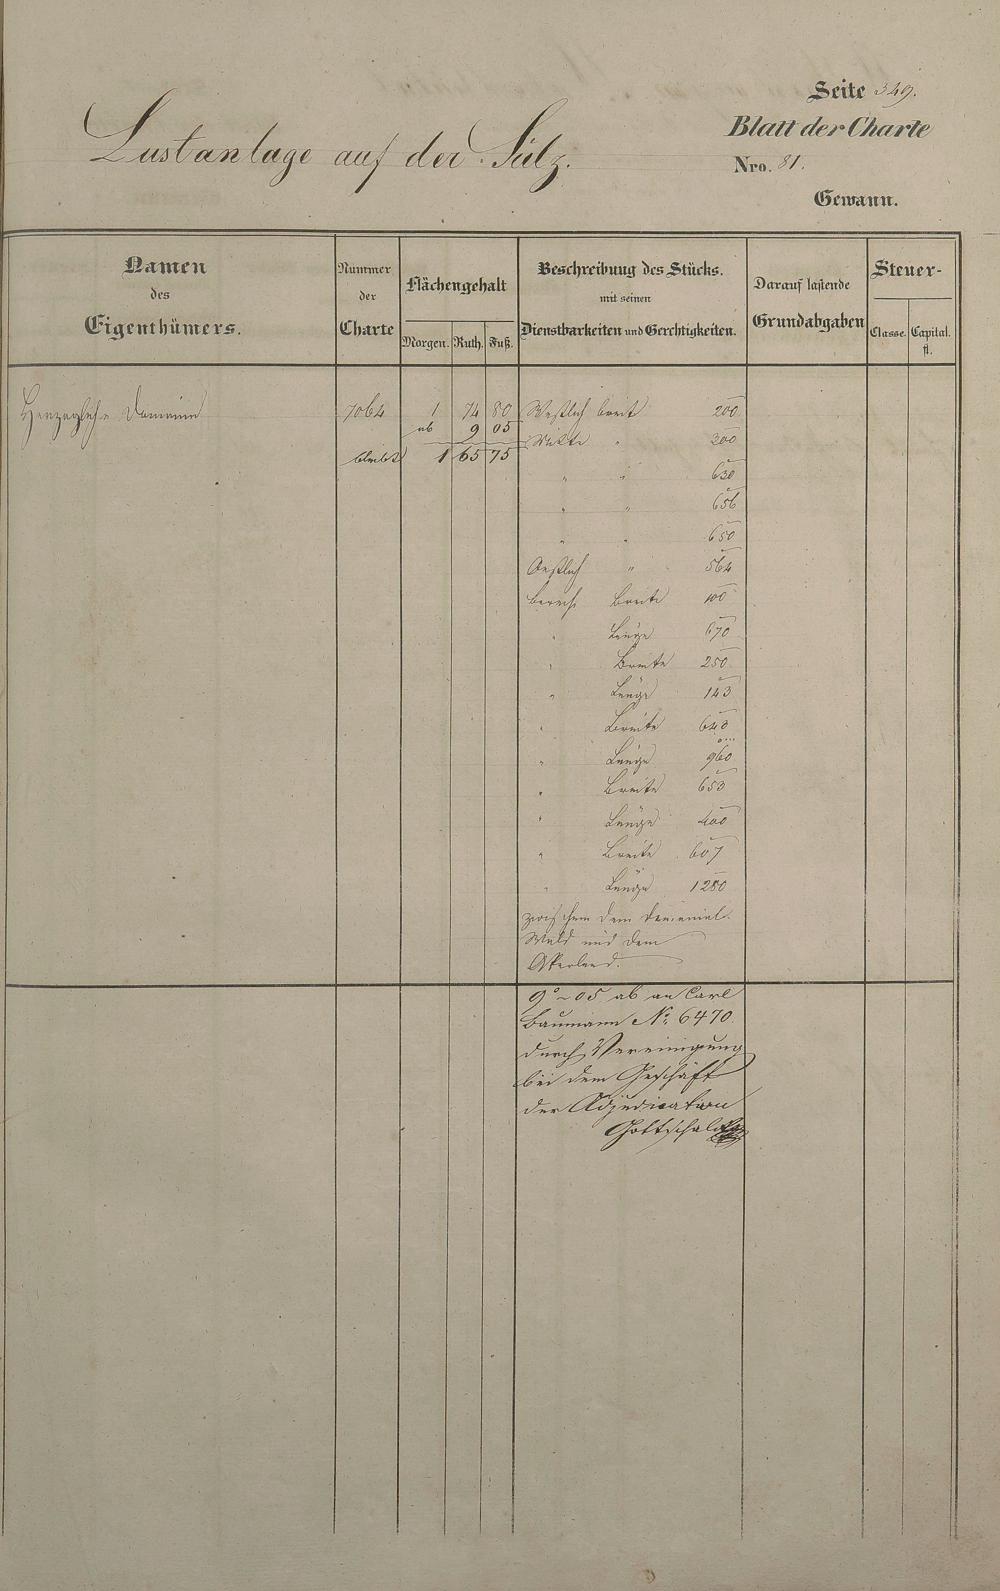 Seite 349.
Lustanlage auf der Sülz.
Blatt der Charte
Nro. 81.
Gewann.
Namen
des
Eigenthümers.
Nummer
der
Charte
Flächengehalt
Morgen. Ruth. Fuß.
Beschreibung des Stücks.
mit seinen
Dienstbarkeiten und Gerchtigkeiten.
Darauf lastende
Grundabgaben
Steuer-
Classe. Capital.
fl.
Herzogliche Domaine 7064 1 74 80 Westlich breit 200
ab 9 05
Mitte " 300
bleibt 1 65 75
" " 630
" " 656
" " 650
Oestlich " 564
berech. Breite 100
" Länge 670
" Breite 250
" Länge 143
" Breite 643
" Länge 960
" Breite 653
" Länge 400
" Breite 607
" Länge 1280
zwischen dem domanial.
Wald und dem
Akerland.
9°~05 ab an Carl
Baumann No. 6470.
durch Vereinigung
bei dem Geschäft
der Adjudication